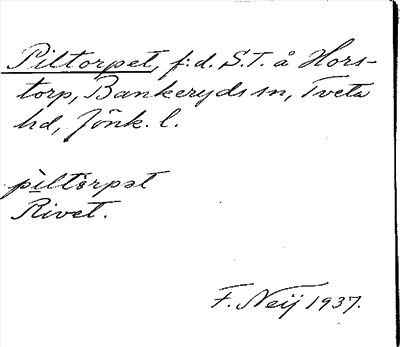 Piltorpet, f.d. S.T. å Hors-
torp, Bankeryds sn, Tveta
hd, Jönk. l.
pìltòrpət
Rivet.
F. Neij 1937.